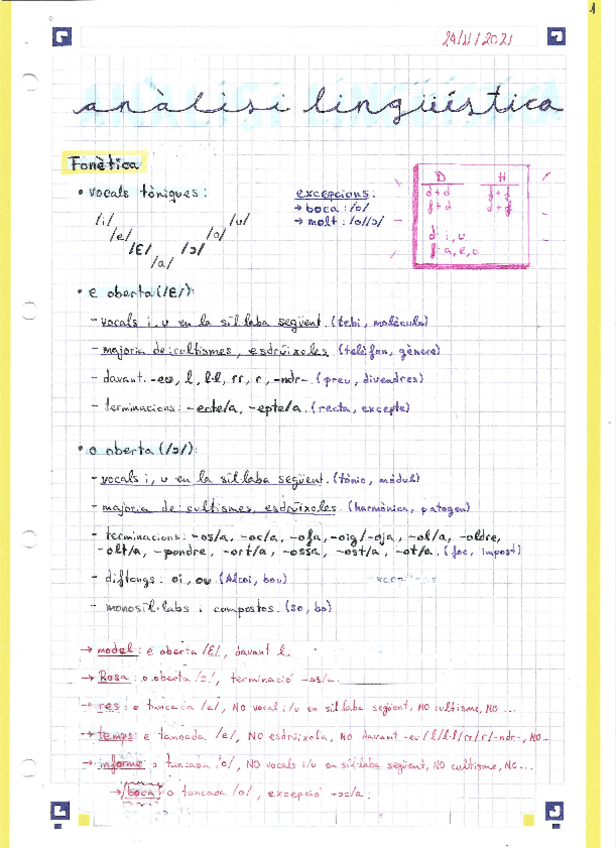 1
24/11/2021
anàlisi lingüística
Fonètica
• vocals tòniques:
/i/ /u/
/e/ /o/
/ɛ/ /ɔ/
/a/
excepcions:
→ boca: /o/
→ molt: /o/ /ɔ/
D H
d+d
f+d
d: i, u
f: a, e, o
• e oberta (/ɛ/):
- vocals i, u en la síl·laba següent. (tebi, molècula)
- majoria de: cultismes, esdrúixoles. (telèfon, gènere)
- davant: -eu, l, l·l, rr, r, -ndr- (preu, divendres)
- terminacions: -ecte/a, -epte/a. (recta, excepte)
• o oberta (/ɔ/):
- vocals i, u en la síl·laba següent. (tònic, mòdul)
- majoria de: cultismes, esdrúixoles. (harmònica, patogen)
- terminacions: -os/a, -oc/a, -ofa, -oig/-oja, -ol/a, -oldre,
-olt/a, -pondre, -ort/a, -ossa, -ost/a, -ot/a. (foc, impost)
- diftongs: oi, ou (Alcoi, bou)
- monosíl·labs i compostos. (so, bo)
→ model: e oberta /ɛ/, davant l.
→ Rosa: o oberta /ɔ/, terminació -os/a.
→ res: e tancada /e/, NO vocal i/u en síl·laba següent, NO cultisme, NO ...
→ temps: e tancada /e/, NO esdrúixola, NO davant -eu/l/l·l/rr/r/-ndr-, NO...
→ informe: o tancada /o/, NO vocals i/u en síl·laba següent, NO cultisme, NO...
→ boca: o tancada /o/, excepció -oc/a.